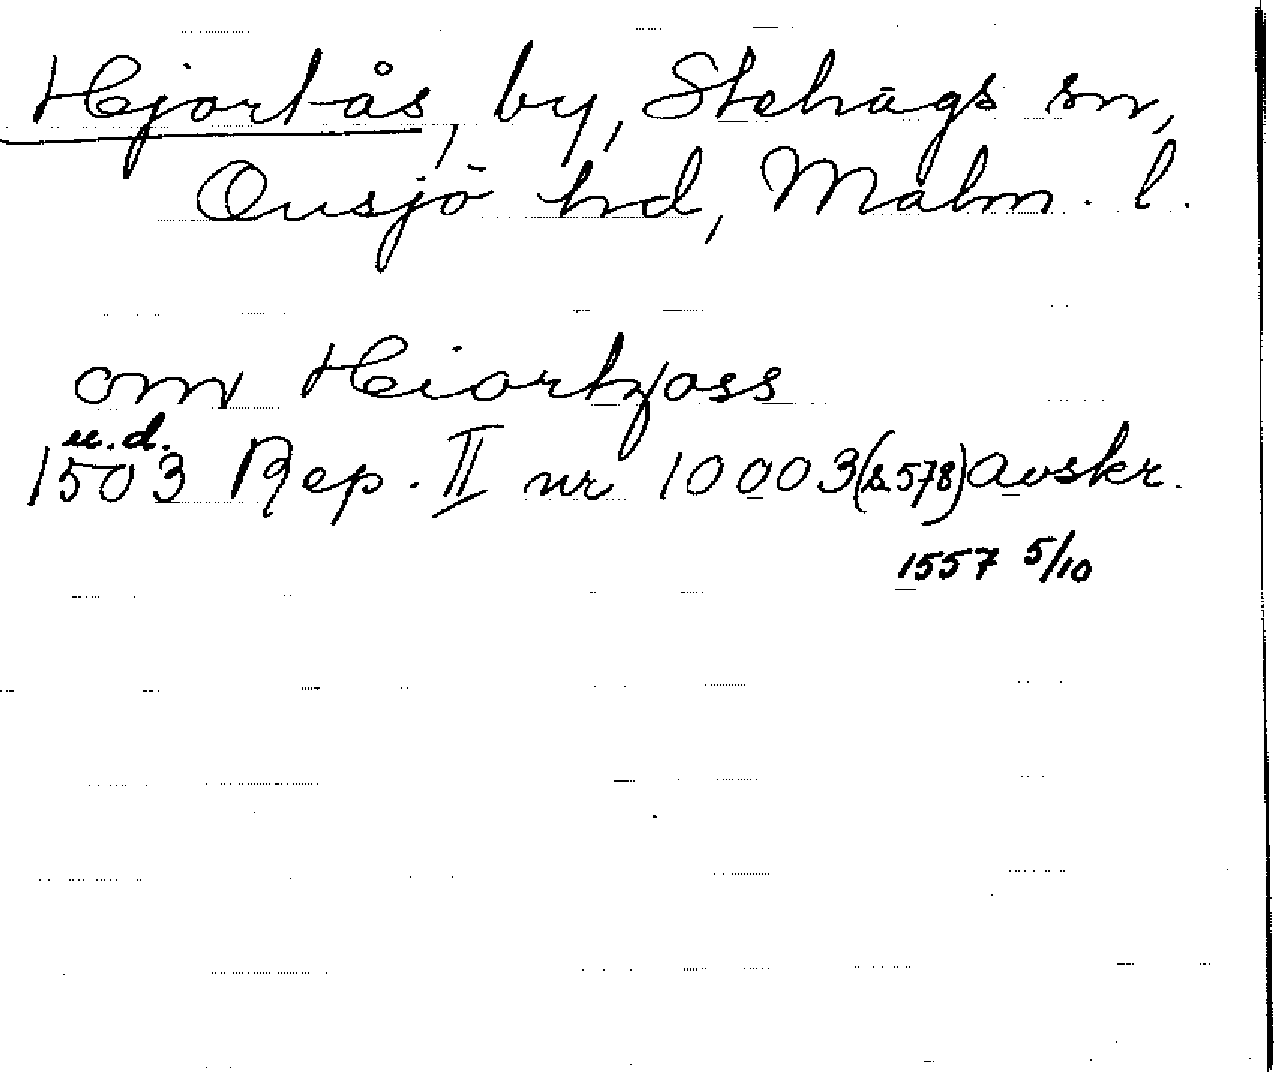 Hjortås, by, Stehags sn,
Onsjö hd, Malm. l.
om Hiortzoss
u.d.
1503 Rep. II nr 10003 (s. 578) avskr.
1557 5/10